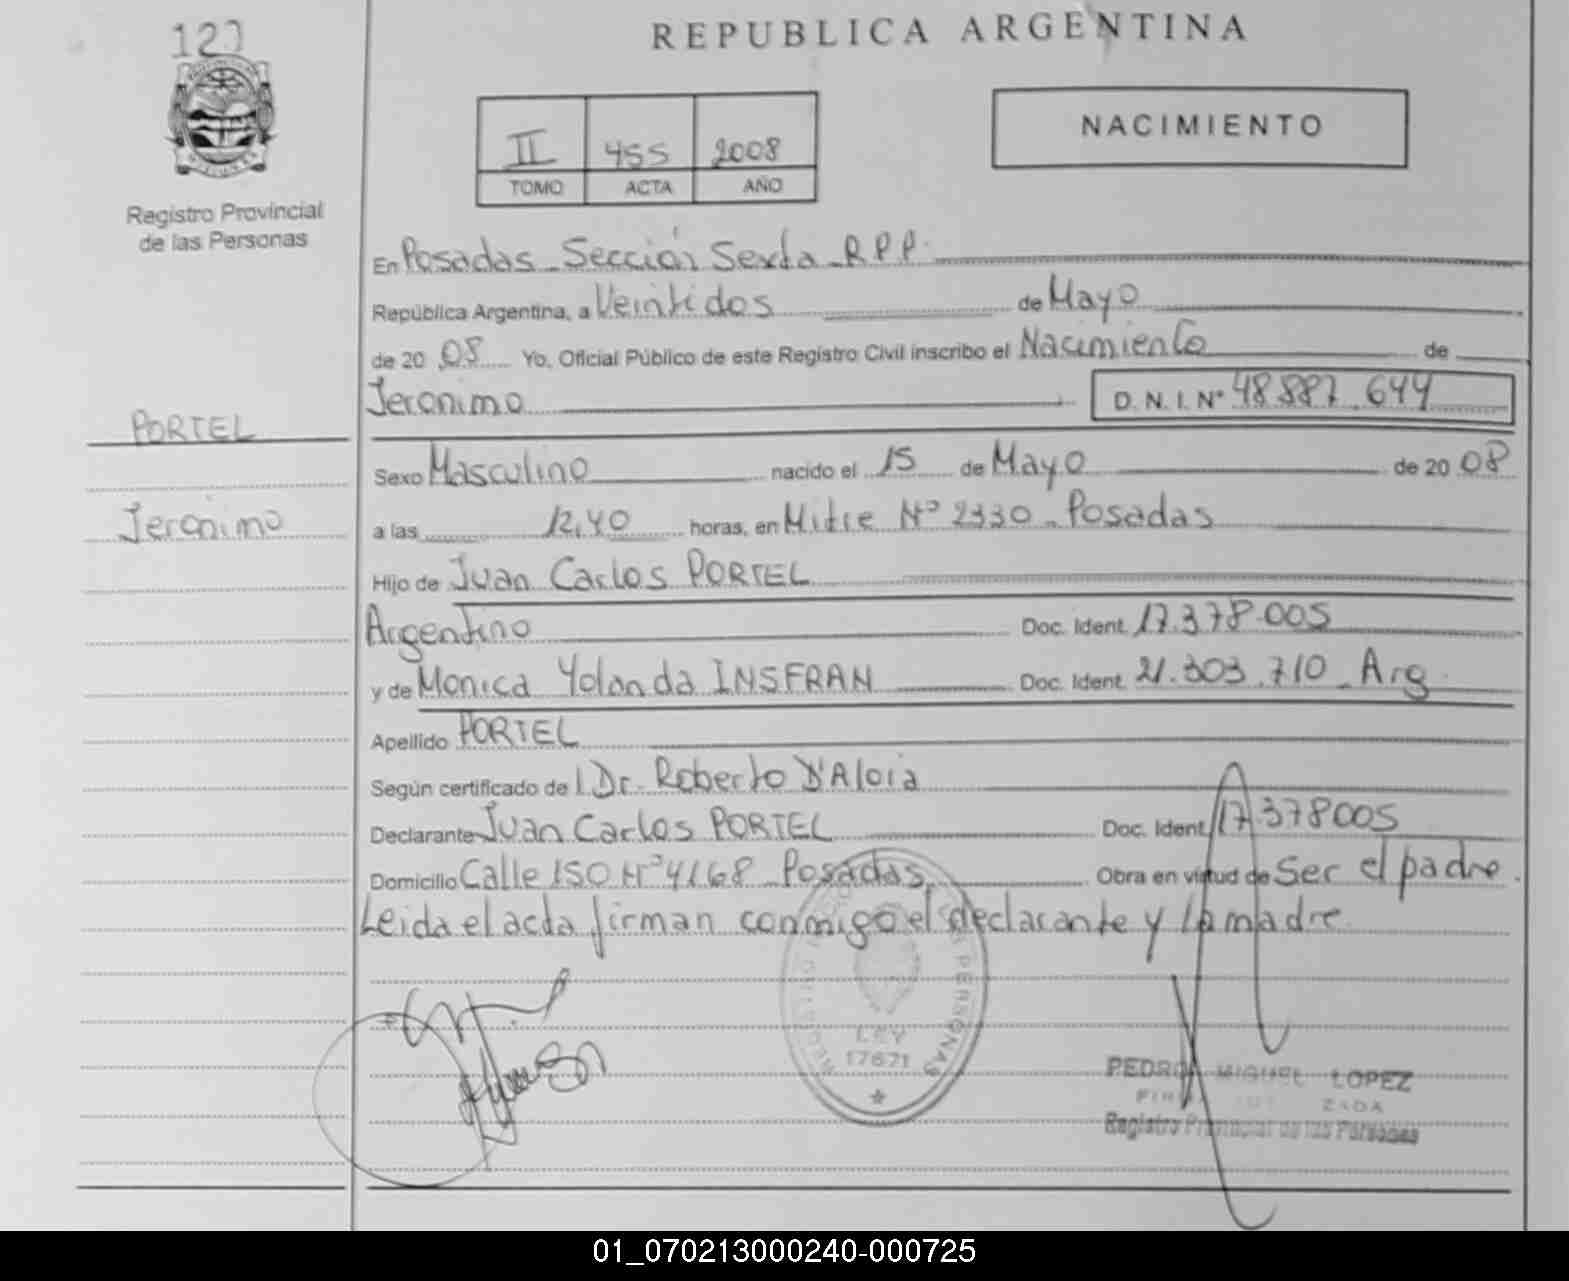 REPUBLICA ARGENTINA
NACIMIENTO
II 455 2008
TOMO ACTA AÑO
Registro Provincial
de las Personas
En Posadas - Sección Sexta - R.P.P.
República Argentina, a Veintidos de Mayo
de 20 08 Yo, Oficial Público de este Registro Civil inscribo el Nacimiento de
Jeronimo D. N. I. Nº 48.887.644
PORTEL
Sexo Masculino nacido el 15 de Mayo de 20 08
Jeronimo
a las 12,40 horas, en Mitre Nº 2330 - Posadas
Hijo de Juan Carlos PORTEL
Argentino Doc. Ident. 17.378.005
y de Monica Yolanda INSFRAN Doc. Ident. 21.303.710 - Arg.
Apellido PORTEL
Según certificado de Dr. Roberto D'Aloia
Declarante Juan Carlos PORTEL Doc. Ident. 17.378005
Domicilio Calle 150 Nº 4168 - Posadas Obra en virtud de Ser el padre.
Leida el acta firman conmigo el declarante y la madre.
LEY
17671
PEDRO MIGUEL LOPEZ
Registro Provincial de las Personas
01_070213000240-000725